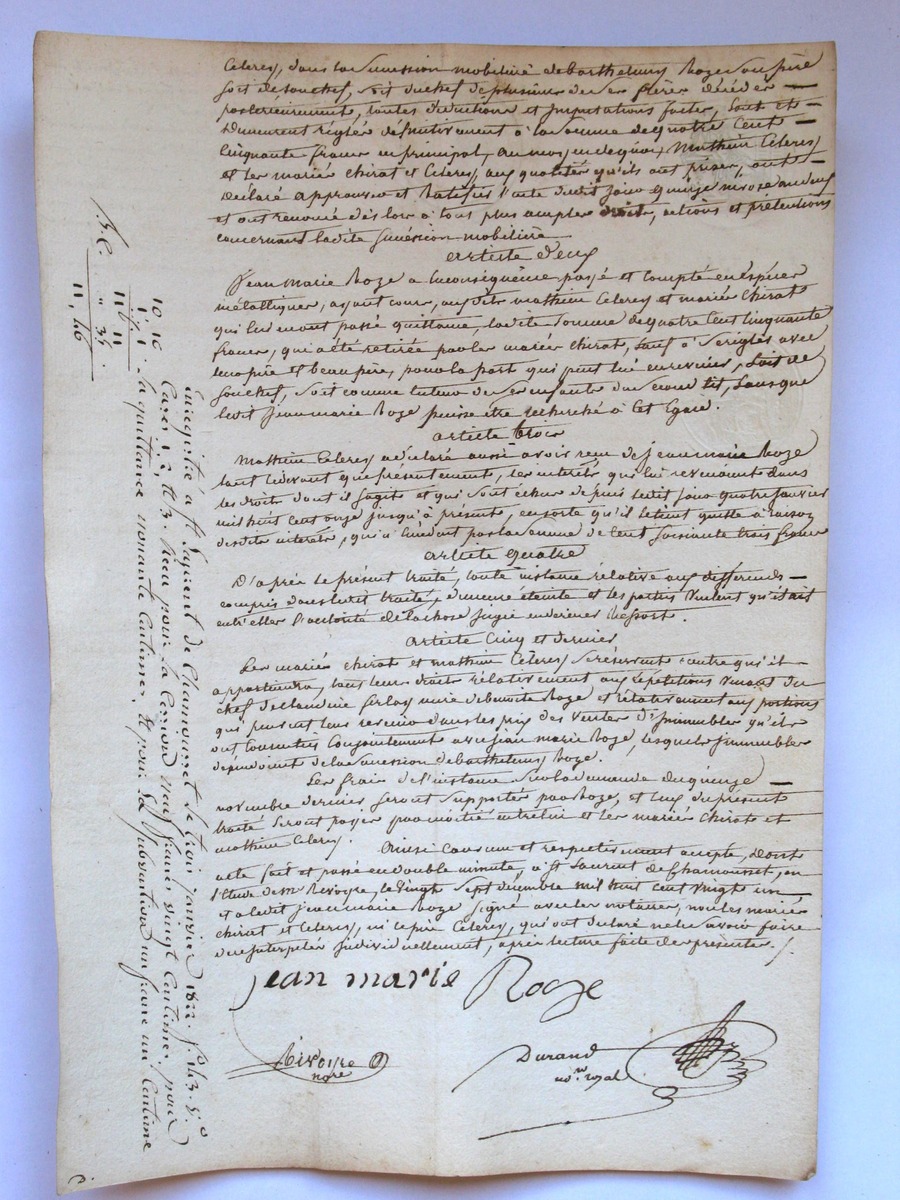 Celerey, dans la succession mobiliere de Barthelemy Roze son père
soit de son chef, soit du chef de plusieurs de ses frères décédés
posterieurement, toutes déductions et imputations faites, sont et
demeurent réglés définitivement à la somme de quatre cent
cinquante francs en principal, au moyen de quoi, Mathieu Celerey
et les mariés Chirat et Celerey, aux qualités qu'ils ont prises, ont
déclaré approuver et ratifier l'acte dudit jour quinze nivose an deux
et ont renoncé dès lors à tous plus amples droits, actions et prétentions
concernant ladite succession mobiliere
article deux
Jean Marie Roze a en conséquence payé et compté en espèces
métalliques, ayant cours, auxdits Mathieu Celerey et mariés Chirat
qui lui en ont passé quittance, ladite somme de quatre cent cinquante
francs, qui a été retirée par les mariés Chirat, sauf à s'en régler avec
leur père et beau père, pour la part qui peut lui en revenir, soit de
son chef, soit comme tuteur de ses enfants du second lit, sans que
ledit Jean marie Roze puisse être recherché à cet égard.
article trois
Mathieu Celerey a déclaré aussi avoir reçu de Jean marie Roze
tant ci devant que présentement, les interêts qui lui revenaient dans
les droits dont il s'agit et qui sont échus depuis ledit jour quatre janvier
mil huit cent onze jusqu'à présent, en sorte qu'il le tient quitte à raison
desdits interêts, par la somme de cent soixante trois francs
article quatre
D'après le présent traité, toute instance rélative aux différends
compris dans ledit traité, demeure éteinte et les parties veulent qu'il ait
entr'elles l'autorité de la chose jugée en dernier ressort.
article cinq et dernier
Les mariés Chirat et Mathieu Celerey se réservent contre qui il
appartiendra, tous leurs droits rélativement aux répétitions venant du
chef de Claudine mère de Benoite Roze et rélativement aux portions
qui peuvent leur revenir dans les prix des ventes d'immeubles qu'ils
ont consenties conjointement avec Jean marie Roze, lesquels immeubles
dépendoient de la succession de Barthelemy Roze.
Les frais de l'instance sur la demande du quinze
novembre dernier seront supportés par Roze, et ceux du présent
traité seront payés par moitié entre lui et les mariés Chirat et
Mathieu Celerey.
Ainsi convenu et respectivement accepté, dont
acte fait et passé en double minute, à St Laurent de Chamousset, en
l'étude de Me Rivoyre, le vingt sept décembre mil huit cent vingt un
et a ledit Jean marie Roze signé avec les notaires, non les mariés
Chirat et Celerey, ni le père Celerey, qui ont déclaré ne le savoir faire
de ce interpelés individuellement, après lecture faite des présentes.
jean marie Roze
Rivoyre
nore
Durand
nore royal
Enregistré à St Laurent de Chamousset le trois janvier 1822. f. 143. V.°
Cases 1, 2, et 3. reçu pour la cession neuf francs vingt centimes, pour
la quittance nonante centimes, & pour la subvention un franc un centime
10 10
1. 1
11 11
" 35
11, 46
D.